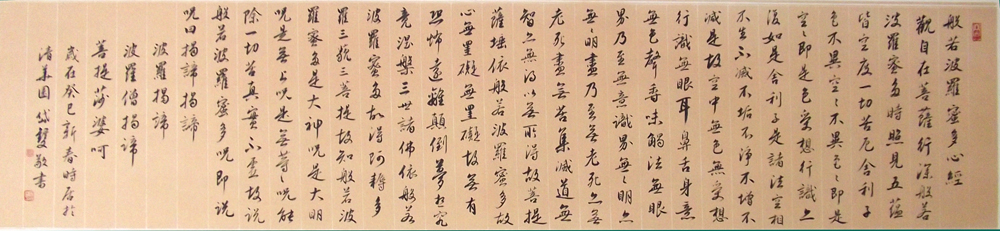 般若波羅蜜多心經
觀自在菩薩行深般若
波羅蜜多時照見五蘊
皆空度一切苦厄舍利子
色不異空々不異色々即是
空々即是色受想行識亦
復如是舍利子是諸法空相
不生不滅不垢不淨不增不
減是故空中無色無受想
行識無眼耳鼻舌身意
無色聲香味觸法無眼
界乃至無意識界無々明亦
無々明盡乃至無老死亦無
老死盡無苦集滅道無
智亦無得以無所得故菩提
薩埵依般若波羅蜜多故
心無罣礙無罣礙故無有
恐怖遠離顛倒夢想究
竟涅槃三世諸佛依般若
波羅蜜多故得阿耨多
羅三藐三菩提故知般若波
羅蜜多是大神呪是大明
呪是無上呪是無等々呪能
除一切苦真實不虛故說
般若波羅蜜多呪即說
呪曰揭諦揭諦
波羅揭諦
波羅僧揭諦
菩提莎婆呵
歲在癸巳新春時居於
清華園 敬書